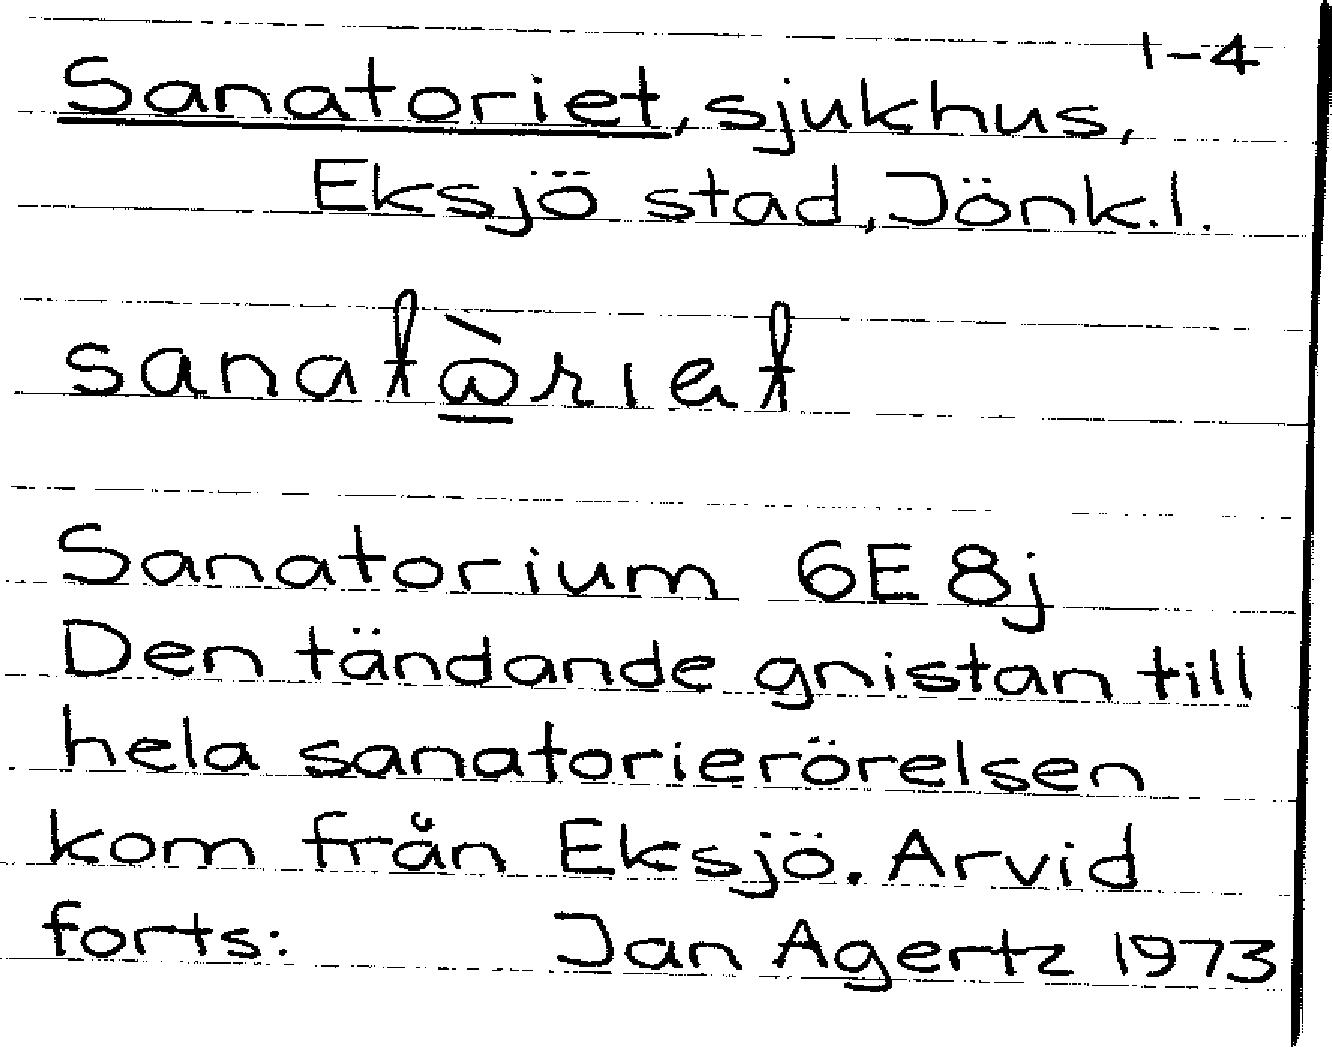 1-4
Sanatoriet, sjukhus,
Eksjö stad, Jönk.l.
sanatò̲riet
Sanatorium 6E 8j
Den tändande gnistan till
hela sanatorierörelsen
kom från Eksjö. Arvid
forts: Jan Agertz 1973